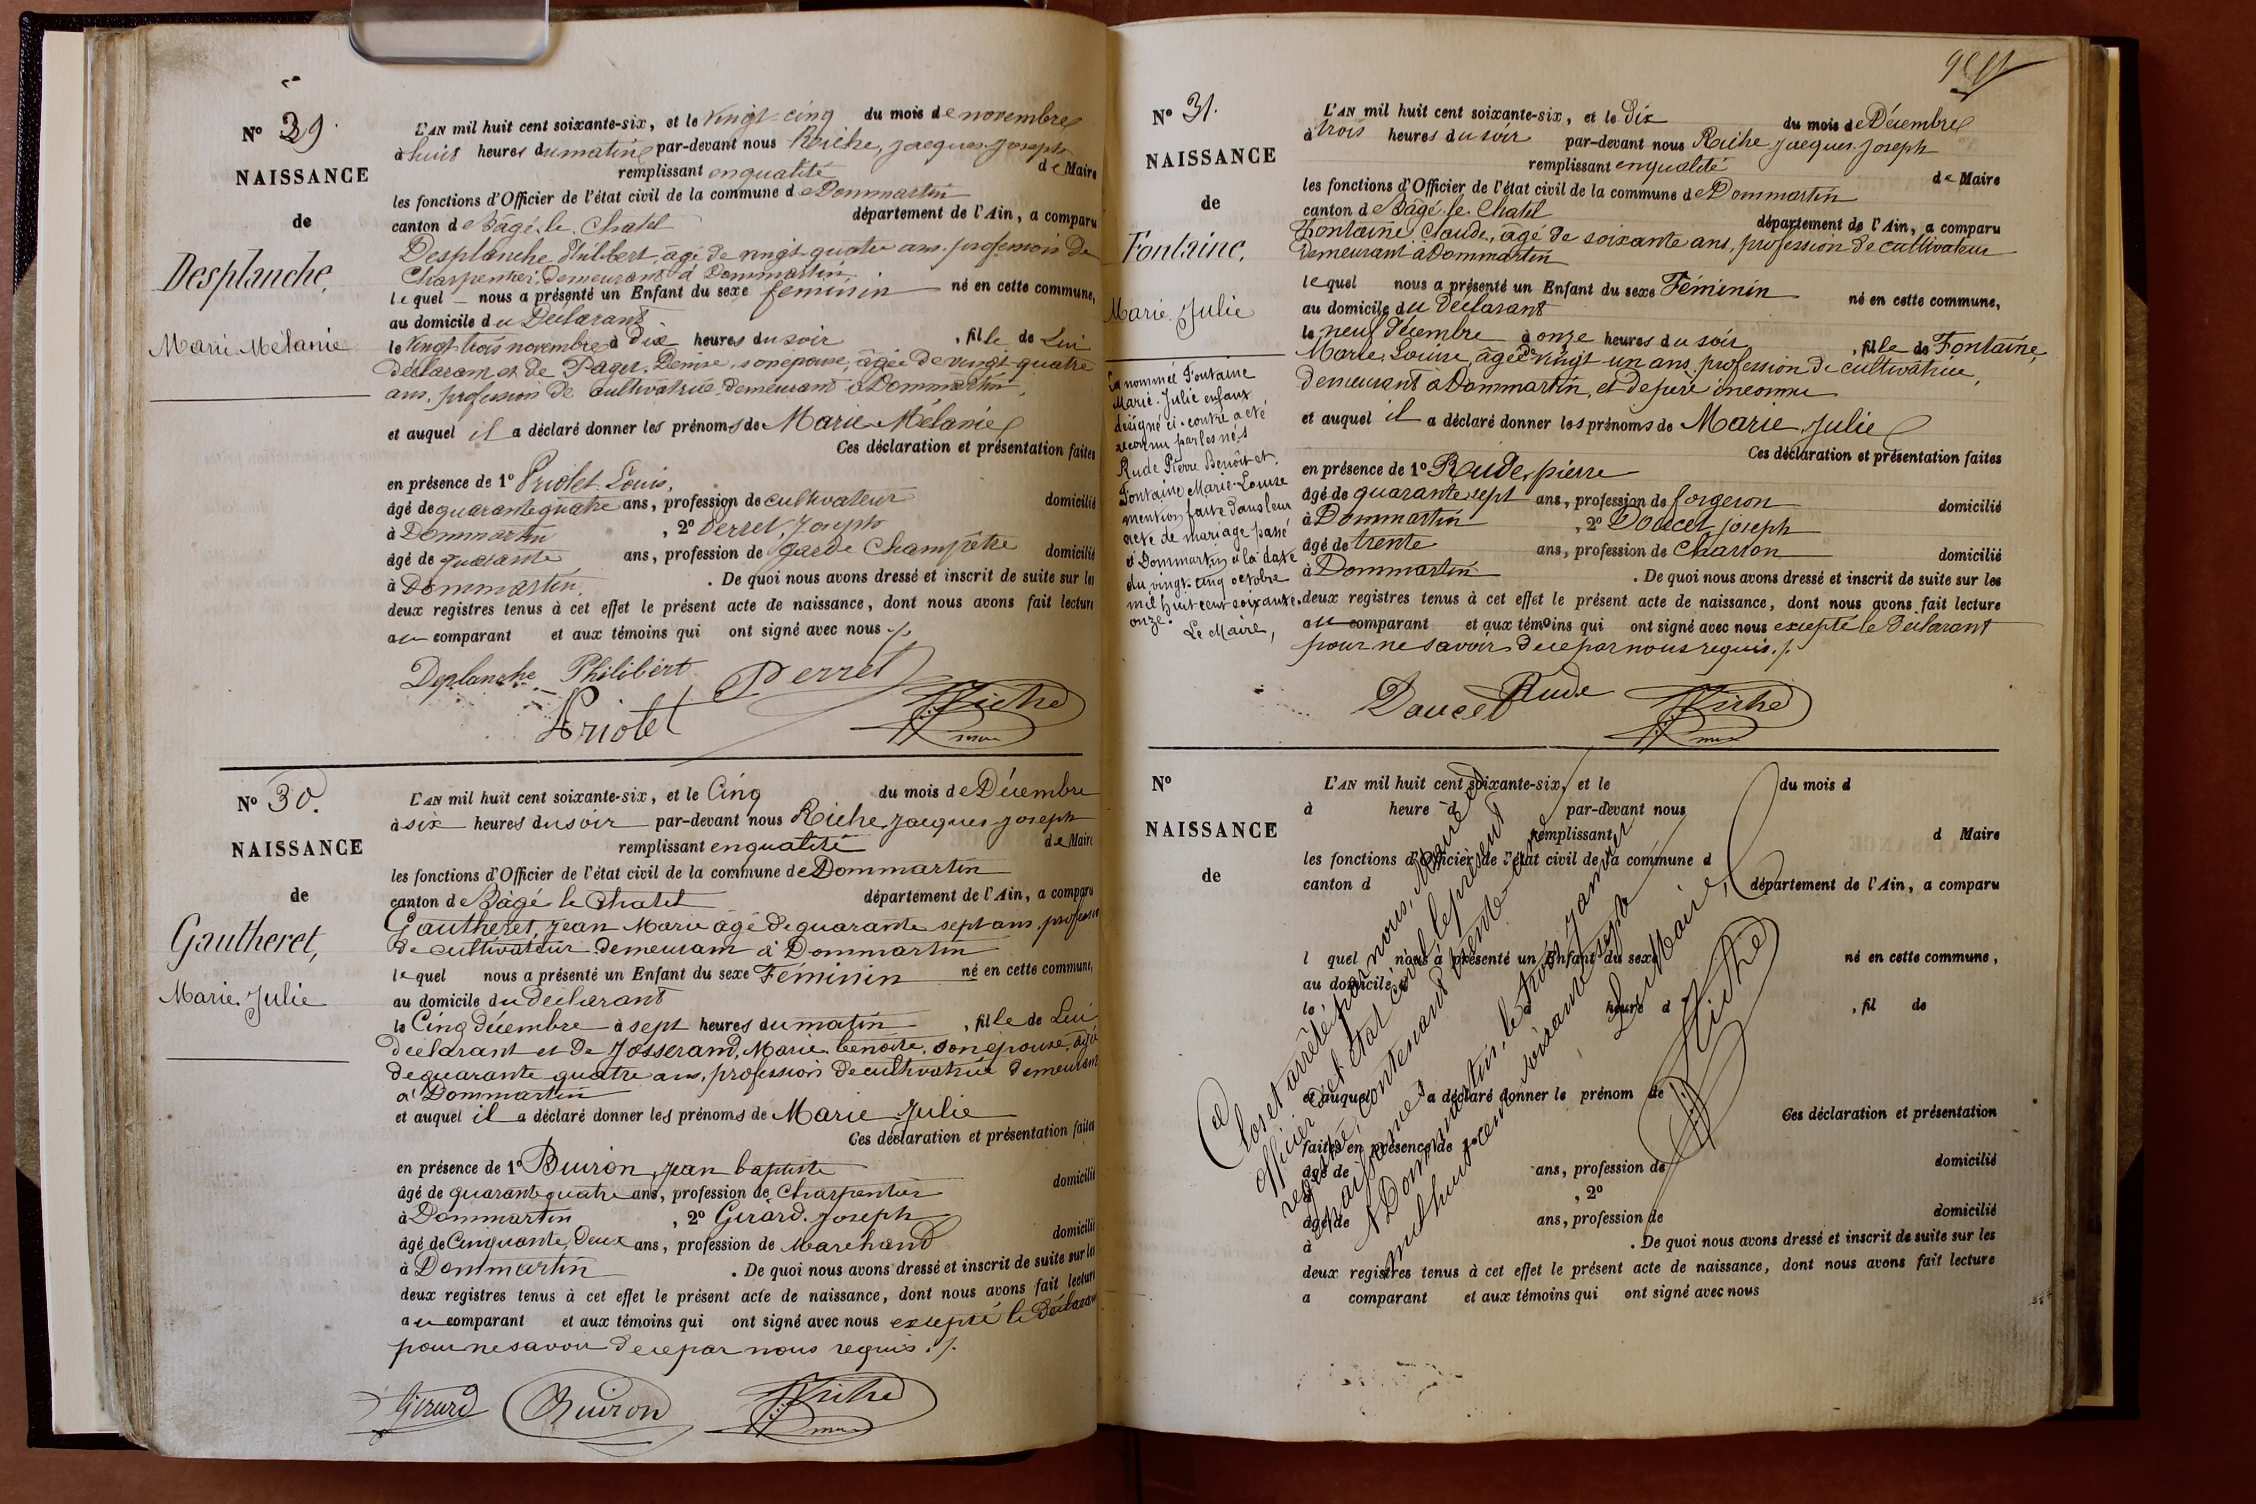 Nº 29.
NAISSANCE
de
Desplanche,
Marie Mélanie
L'AN mil huit cent soixante-six, et le vingt-cinq du mois de novembre
à huit heures du matin par-devant nous Riche, Jacques Joseph
remplissant en qualité de Maire
les fonctions d'Officier de l'état civil de la commune de Dommartin
canton de Bâgé-le-Chatel département de l'Ain, a comparu
Desplanche Philibert, âgé de vingt-quatre ans, profession de
Charpentier, demeurant à Dommartin,
lequel nous a présenté un Enfant du sexe féminin né en cette commune,
au domicile du Déclarant
le vingt-trois novembre à dix heures du soir, fille de Lui
déclarant et de Paget, Denise, son épouse, âgée de vingt-quatre
ans, profession de cultivatrice demeurant à Dommartin,
et auquel il a déclaré donner les prénoms de Marie Mélanie
Ces déclaration et présentation faites
en présence de 1º Priolet Louis,
âgé de quarante quatre ans, profession de cultivateur domicilié
à Dommartin, 2º Perret, Joseph
âgé de quarante ans, profession de garde Champêtre domicilié
à Dommartin. De quoi nous avons dressé et inscrit de suite sur les
deux registres tenus à cet effet le présent acte de naissance, dont nous avons fait lecture
au comparant et aux témoins qui ont signé avec nous ./.
Deplanche Philibert Perret
Priolet Riche
Nº 30.
NAISSANCE
de
Gautheret,
Marie Julie
L'AN mil huit cent soixante-six, et le Cinq du mois de Décembre
à six heures du soir par-devant nous Riche, Jacques Joseph
remplissant en qualité de Maire
les fonctions d'Officier de l'état civil de la commune de Dommartin
canton de Bâgé le Chatel département de l'Ain, a comparu
Gautheret, Jean Marie âgé de quarante sept ans, profession
de cultivateur demeurant à Dommartin
lequel nous a présenté un Enfant du sexe Féminin né en cette commune,
au domicile du déclarant
le Cinq décembre à sept heures du matin, fille de Lui
déclarant et de Josserand, Marie benoite, son épouse, âgée
de quarante quatre ans, profession de cultivatrice demeurant
à Dommartin
et auquel il a déclaré donner les prénoms de Marie Julie
Ces déclaration et présentation faites
en présence de 1º Buiron, Jean baptiste
âgé de quarante quatre ans, profession de Charpentier domicilié
à Dommartin, 2º Girard, Joseph
âgé de Cinquante Deux ans, profession de Marchand domicilié
à Dommartin. De quoi nous avons dressé et inscrit de suite sur les
deux registres tenus à cet effet le présent acte de naissance, dont nous avons fait lecture
au comparant et aux témoins qui ont signé avec nous excepté le Déclarant
pour ne savoir de ce par nous requis ./.
Girard Buiron Riche
Nº 31.
NAISSANCE
de
Fontaine,
Marie Julie
La nommée Fontaine
Marie-Julie enfant
désigné ci-contre a été
reconnu par les nés
Rude Pierre Benoît et
Fontaine Marie-Louise
mention faite dans leur
acte de mariage passé
à Dommartin à la date
du vingt-cinq octobre
mil huit cent soixante-
onze.
Le Maire,
L'AN mil huit cent soixante-six, et le Dix du mois de Décembre
à trois heures du soir par-devant nous Riche Jacques Joseph
remplissant en qualité de Maire
les fonctions d'Officier de l'état civil de la commune de Dommartin
canton de Bâgé-le-Chatel département de l'Ain, a comparu
Fontaine Claude, âgé de soixante ans, profession de cultivateur
demeurant à Dommartin
lequel nous a présenté un Enfant du sexe Féminin né en cette commune,
au domicile du déclarant
le neuf décembre à onze heures du soir, fille de Fontaine,
Marie Louise, âgée de vingt-un ans, profession de cultivatrice,
demeurant à Dommartin, et de père inconnu
et auquel il a déclaré donner les prénoms de Marie Julie
Ces déclaration et présentation faites
en présence de 1º Rude, pierre
âgé de quarante sept ans, profession de forgeron domicilié
à Dommartin, 2º Doucet, Joseph
âgé de trente ans, profession de Charron domicilié
à Dommartin. De quoi nous avons dressé et inscrit de suite sur les
deux registres tenus à cet effet le présent acte de naissance, dont nous avons fait lecture
au comparant et aux témoins qui ont signé avec nous excepté le Déclarant
pour ne savoir de ce par nous requis ./.
Doucet Rude Riche
Nº
NAISSANCE
de
L'AN mil huit cent soixante-six, et le du mois d
à heure d par-devant nous
remplissant d Maire
les fonctions d'Officier de l'état civil de la commune d
canton d département de l'Ain, a comparu
l quel nous a présenté un Enfant du sexe né en cette commune,
au domicile d
le à heure d , fil de
et auquel a déclaré donner le prénom de
Ces déclaration et présentation
faites en présence de 1º
âgé de ans, profession de domicilié
à , 2º
âgé de ans, profession de domicilié
à . De quoi nous avons dressé et inscrit de suite sur les
deux registres tenus à cet effet le présent acte de naissance, dont nous avons fait lecture
a comparant et aux témoins qui ont signé avec nous
Clos et arrêté par nous, Maire et
officier de l'état civil, le présent
registre, contenant trente-une
naissances
A Dommartin, le trois Janvier
mil huit cent soixante sept
Le Maire,
Riche